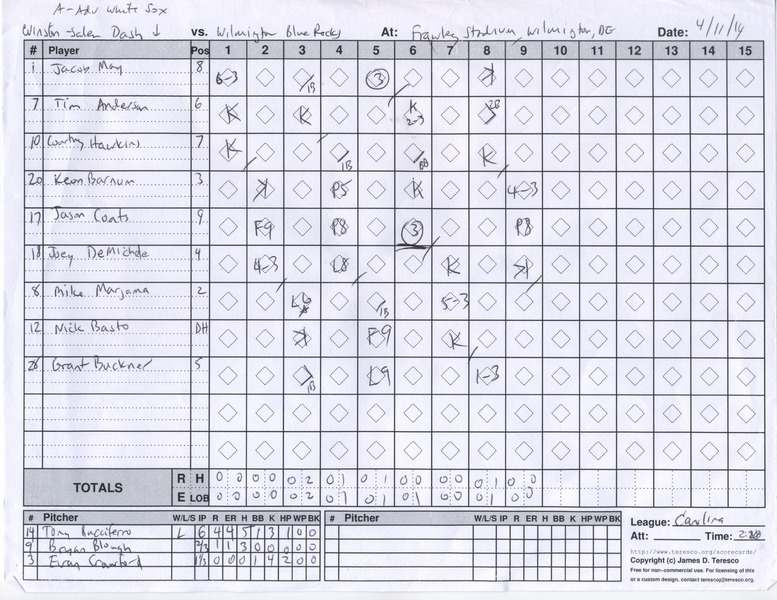 A-Adv White Sox
Winston-Salem Dash ↓ vs. Wilmington Blue Rocks At: Frawley Stadium, Wilmington, DE Date: 4/11/14
# Player Pos 1 2 3 4 5 6 7 8 9 10 11 12 13 14 15
1 Jacob May 8 6-3 1B 3
7 Tim Anderson 6 K K K 2-3 2B
10 Courtney Hawkins 7 K 1B BB K
20 Keon Barnum 3 K P5 K 4-3
17 Jason Coats 9 F9 P8 3 P8
18 Joey DeMichele 4 4-3 L8 K K
8 Mike Marjama 2 L6 1B 5-3
12 Nick Basto DH K F9 K
26 Grant Buckner 5 1B L9 1-3
TOTALS R H 0 0 0 0 0 2 0 1 0 1 0 0 0 0 0 1 0 0
E LOB 0 0 0 0 0 2 0 1 0 1 0 1 0 0 0 1 0 0
# Pitcher W/L/S IP R ER H BB K HP WP BK # Pitcher W/L/S IP R ER H BB K HP WP BK
14 Tony Bucciferro L 6 4 4 5 1 3 1 0 0
9 Bryan Blough 2/3 1 1 3 0 0 0 0 0
3 Evan Crawford 1 1/3 0 0 0 1 4 2 0 0
League: Carolina
Att: Time:
http://www.teresco.org/scorecards/
Copyright (c) James D. Teresco
Free for non-commercial use. For licensing of this
or a custom design, contact terescoj@teresco.org.